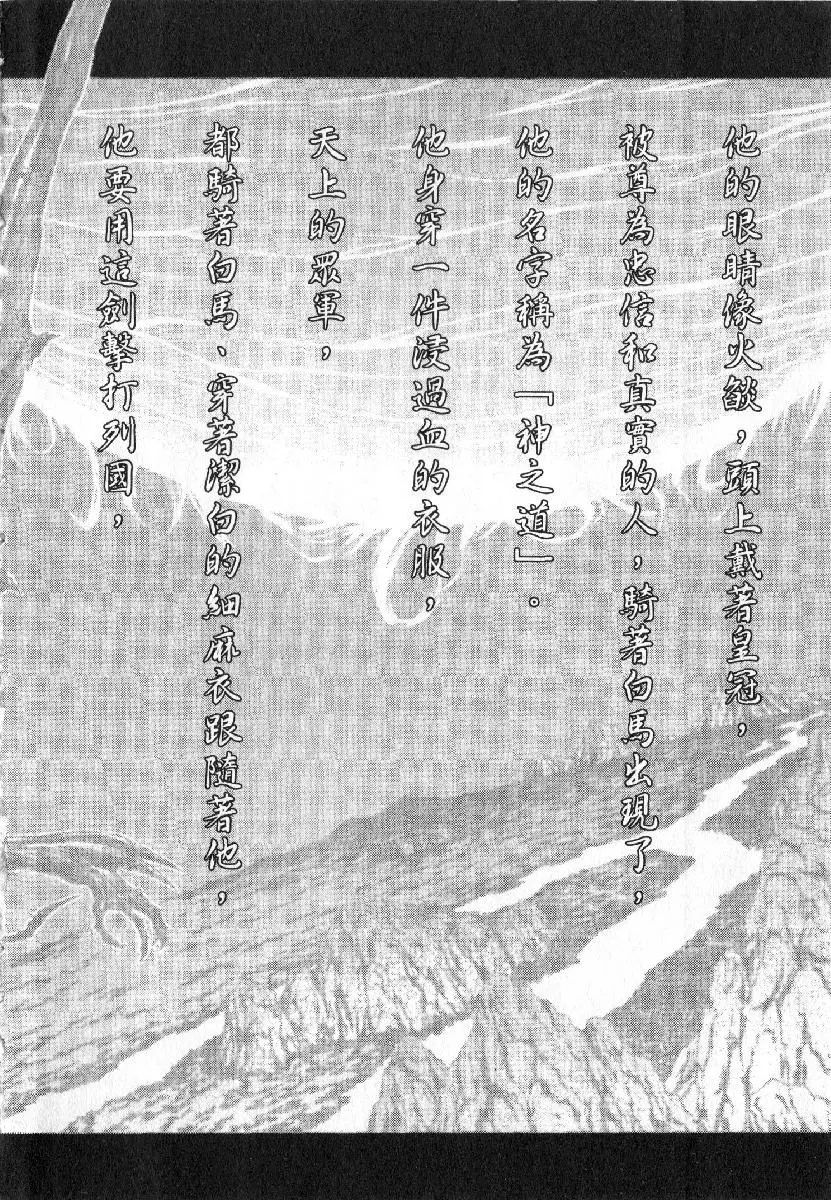 他的眼睛像火燄，頭上戴著皇冠，
被尊為忠信和真實的人，騎著白馬出現了，
他的名字稱為「神之道」。
他身穿一件浸過血的衣服，
天上的眾軍，
都騎著白馬、穿著潔白的細麻衣跟隨著他，
他要用這劍擊打列國，